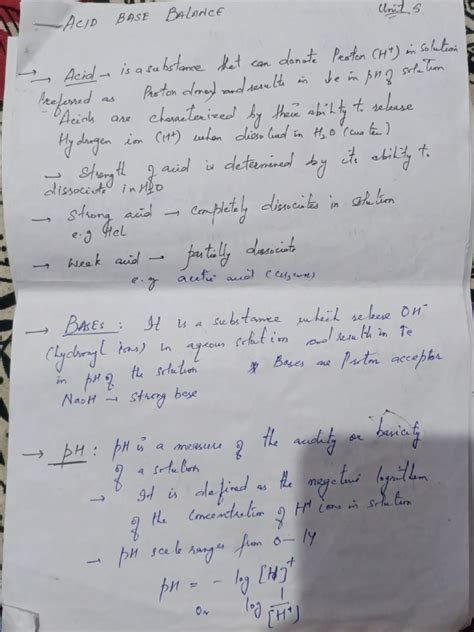 Unit 5
→ ACID BASE BALANCE
→ Acid → is a substance that can donate Proton (H⁺) in solution
(referred as Proton donor) and results in ↓e in pH of solution
Acids are characterized by their ability to release
Hydrogen ion (H⁺) when dissolved in H₂O (water)
→ Strength of acid is determined by its ability to
dissociate in H₂O
→ Strong acid → completely dissociates in solution
e.g HCl
→ Weak acid → partially dissociate
e.g acetic acid (CH₃COOH)
→ BASES : It is a substance which release OH⁻
(hydroxyl ions) in aqueous solution and result in ↑e
in pH of the solution * Bases are Proton acceptor
NaOH → Strong base
→ pH : pH is a measure of the acidity or basicity
of a solution
→ It is defined as the negative logrithem
of the concentration of H⁺ ions in solution
→ pH scale ranges from 0 – 14
pH = - log [H]⁺
or log 1/[H⁺]